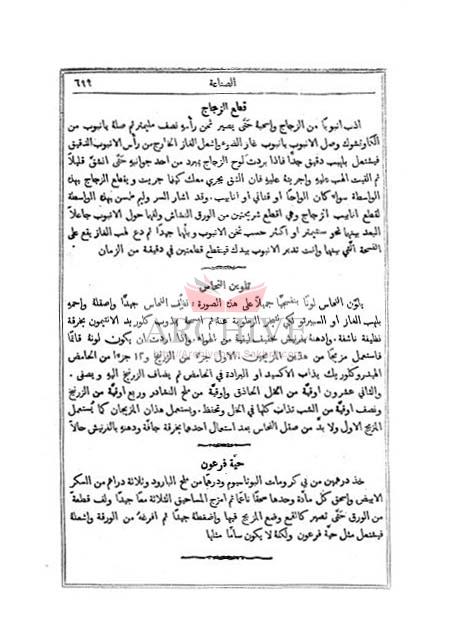 الصناعة ٦٩٩
قطع الزجاج
اذب انبوبًا من الزجاج واسحبهُ حتى يصير ثخن رأسهِ نصف مليمتر ثم صلهُ بانبوب من
الكاوتشوك وصل الانبوب بانبوب غاز القدر واشعل الغاز الخارج من رأس الانبوب الدقيق
فيشتعل بلهيب دقيق جدًّا فاذا بردت لوح الزجاج بمبرد من احد جوانبهِ حتى انشقَّ قليلاً
ثم ألقيت اللهب عليهِ واجريتهُ عليهِ فان الشق يجري معك كيفما جريت ويقطع الزجاج بهذه
الواسطة سواء كان الواحًا او قناني او انابيب. وقد اشار السر وليم طمسن بهذه الواسطة
لقطع انابيب الزجاج وهي اقطع شريحتين من الورق النشاش ولفها حول الانبوب جاعلاً
البعد بينها نحو سنتيمتر او اكثر حسب ثخن الانبوب وبلها جيدًا ثم دع لهب الغاز يقع على
الفسحة التي بينها وانت تدير الانبوب بيدك فينقطع قطعتين في دقيقة من الزمان
تلوين النحاس
يلوَّن النحاس لونًا بنفسجيًّا جميلاً على هذه الصورة: نظِّف النحاس جيدًا واصقلهُ واحمهِ
بلهيب الغاز او السبيرتو لكي تطير الرطوبة عنهُ ثم امسحهُ بكلوريد الانتيمون بخرقة
نظيفة ناشفة. وادهنهُ بفرنيش خفيف ليقيهُ من الهواء. واذا اردت ان يكون لونهُ قاتمًا
فاستعمل مزيجًا من هذين المزيجين. الاول جزء من الزرنيخ و١٢ جزءًا من الحامض
الهيدروكلوريك يذاب الاكسيد او البرادة في الحامض ثم يضاف الزرنيخ اليهِ ويصفى.
والثاني عشرون اوقية من الخل الحاذق واوقية من ملح النشادر وربع اوقية من الزرنيخ
ونصف اوقية من الشب تذاب كلها في الخل وتحفظ. ويستعمل هذان المزيجان كما يُستعمل
المزيج الاول ولا بدَّ من صقل النحاس بعد استعمال احدهما بخرقة جافة ودهنهِ بالفرنيش حالاً
حيَّة فرعون
خذ درهمين من بي كرومات البوتاسيوم ودرهمًا من ملح البارود وثلاثة دراهم من السكر
الابيض واسحق كل مادة وحدها سحقًا ناعمًا ثم امزج المساحيق الثلاثة معًا جيدًا ولف قطعة
من الورق حتى تصير كالقمع وضع المزيج فيها واضغطهُ جيدًا ثم افرغهُ من الورقة واشعلهُ
فيشتعل مثل حيَّة فرعون ولكنهُ لا يكون سامًّا مثلها
ARCHIVE